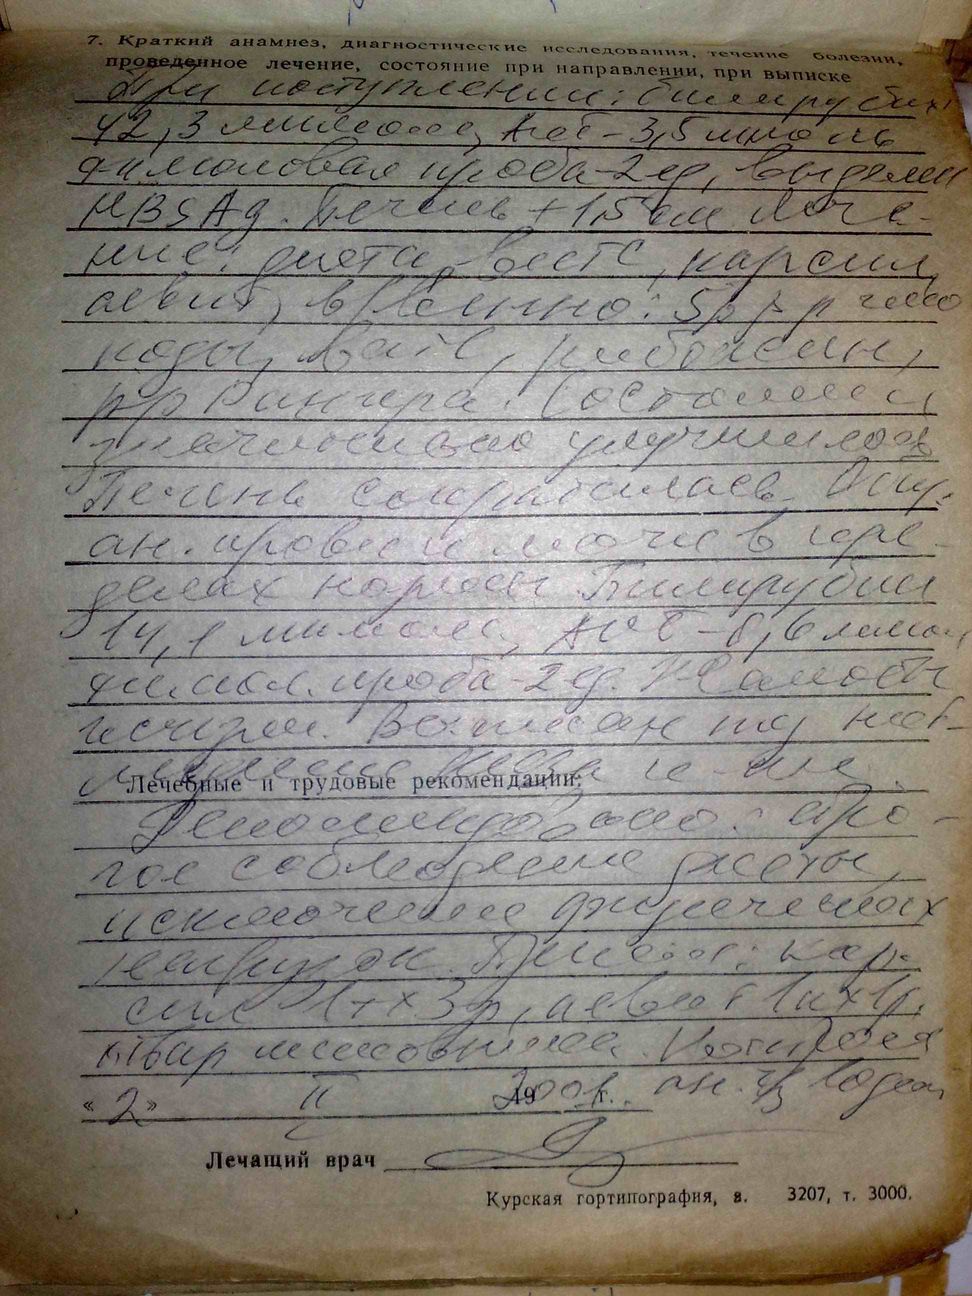 7. Краткий анамнез, диагностические исследования, течение болезни,
проведенное лечение, состояние при направлении, при выписке
При поступлении: билирубин
42,3 мкмоль, АлТ-3,5 ммоль
тимоловая проба-2 ед, выделен
HBSAg. Печень +1,5 см Лече-
ние: диета, карсил,
аевит, в/венно: 5% р-р глю
козы, вит С, рибоксин,
р-р Рингера. Состояние
значительно улучшилось
Печень сократилась. Общ.
ан. крови и мочи в пре-
делах нормы. Билирубин
14,1 мкмоль, АлТ-1,6 ммоль,
тимол. проба-2 ед. Желтость
исчезла. Выписан под наб-
людение
Лечебные и трудовые рекомендации:
Рекомендовано: стро-
гое соблюдение диеты,
исключение физических
нагрузок. Принимать: кар-
сил 1т х 3р, аевит 1к х 1р.
отвар шиповника. Контроль
«2» II 2001 19 г. ан. ч/з
Лечащий врач
Курская гортипография, з. 3207, т. 3000.